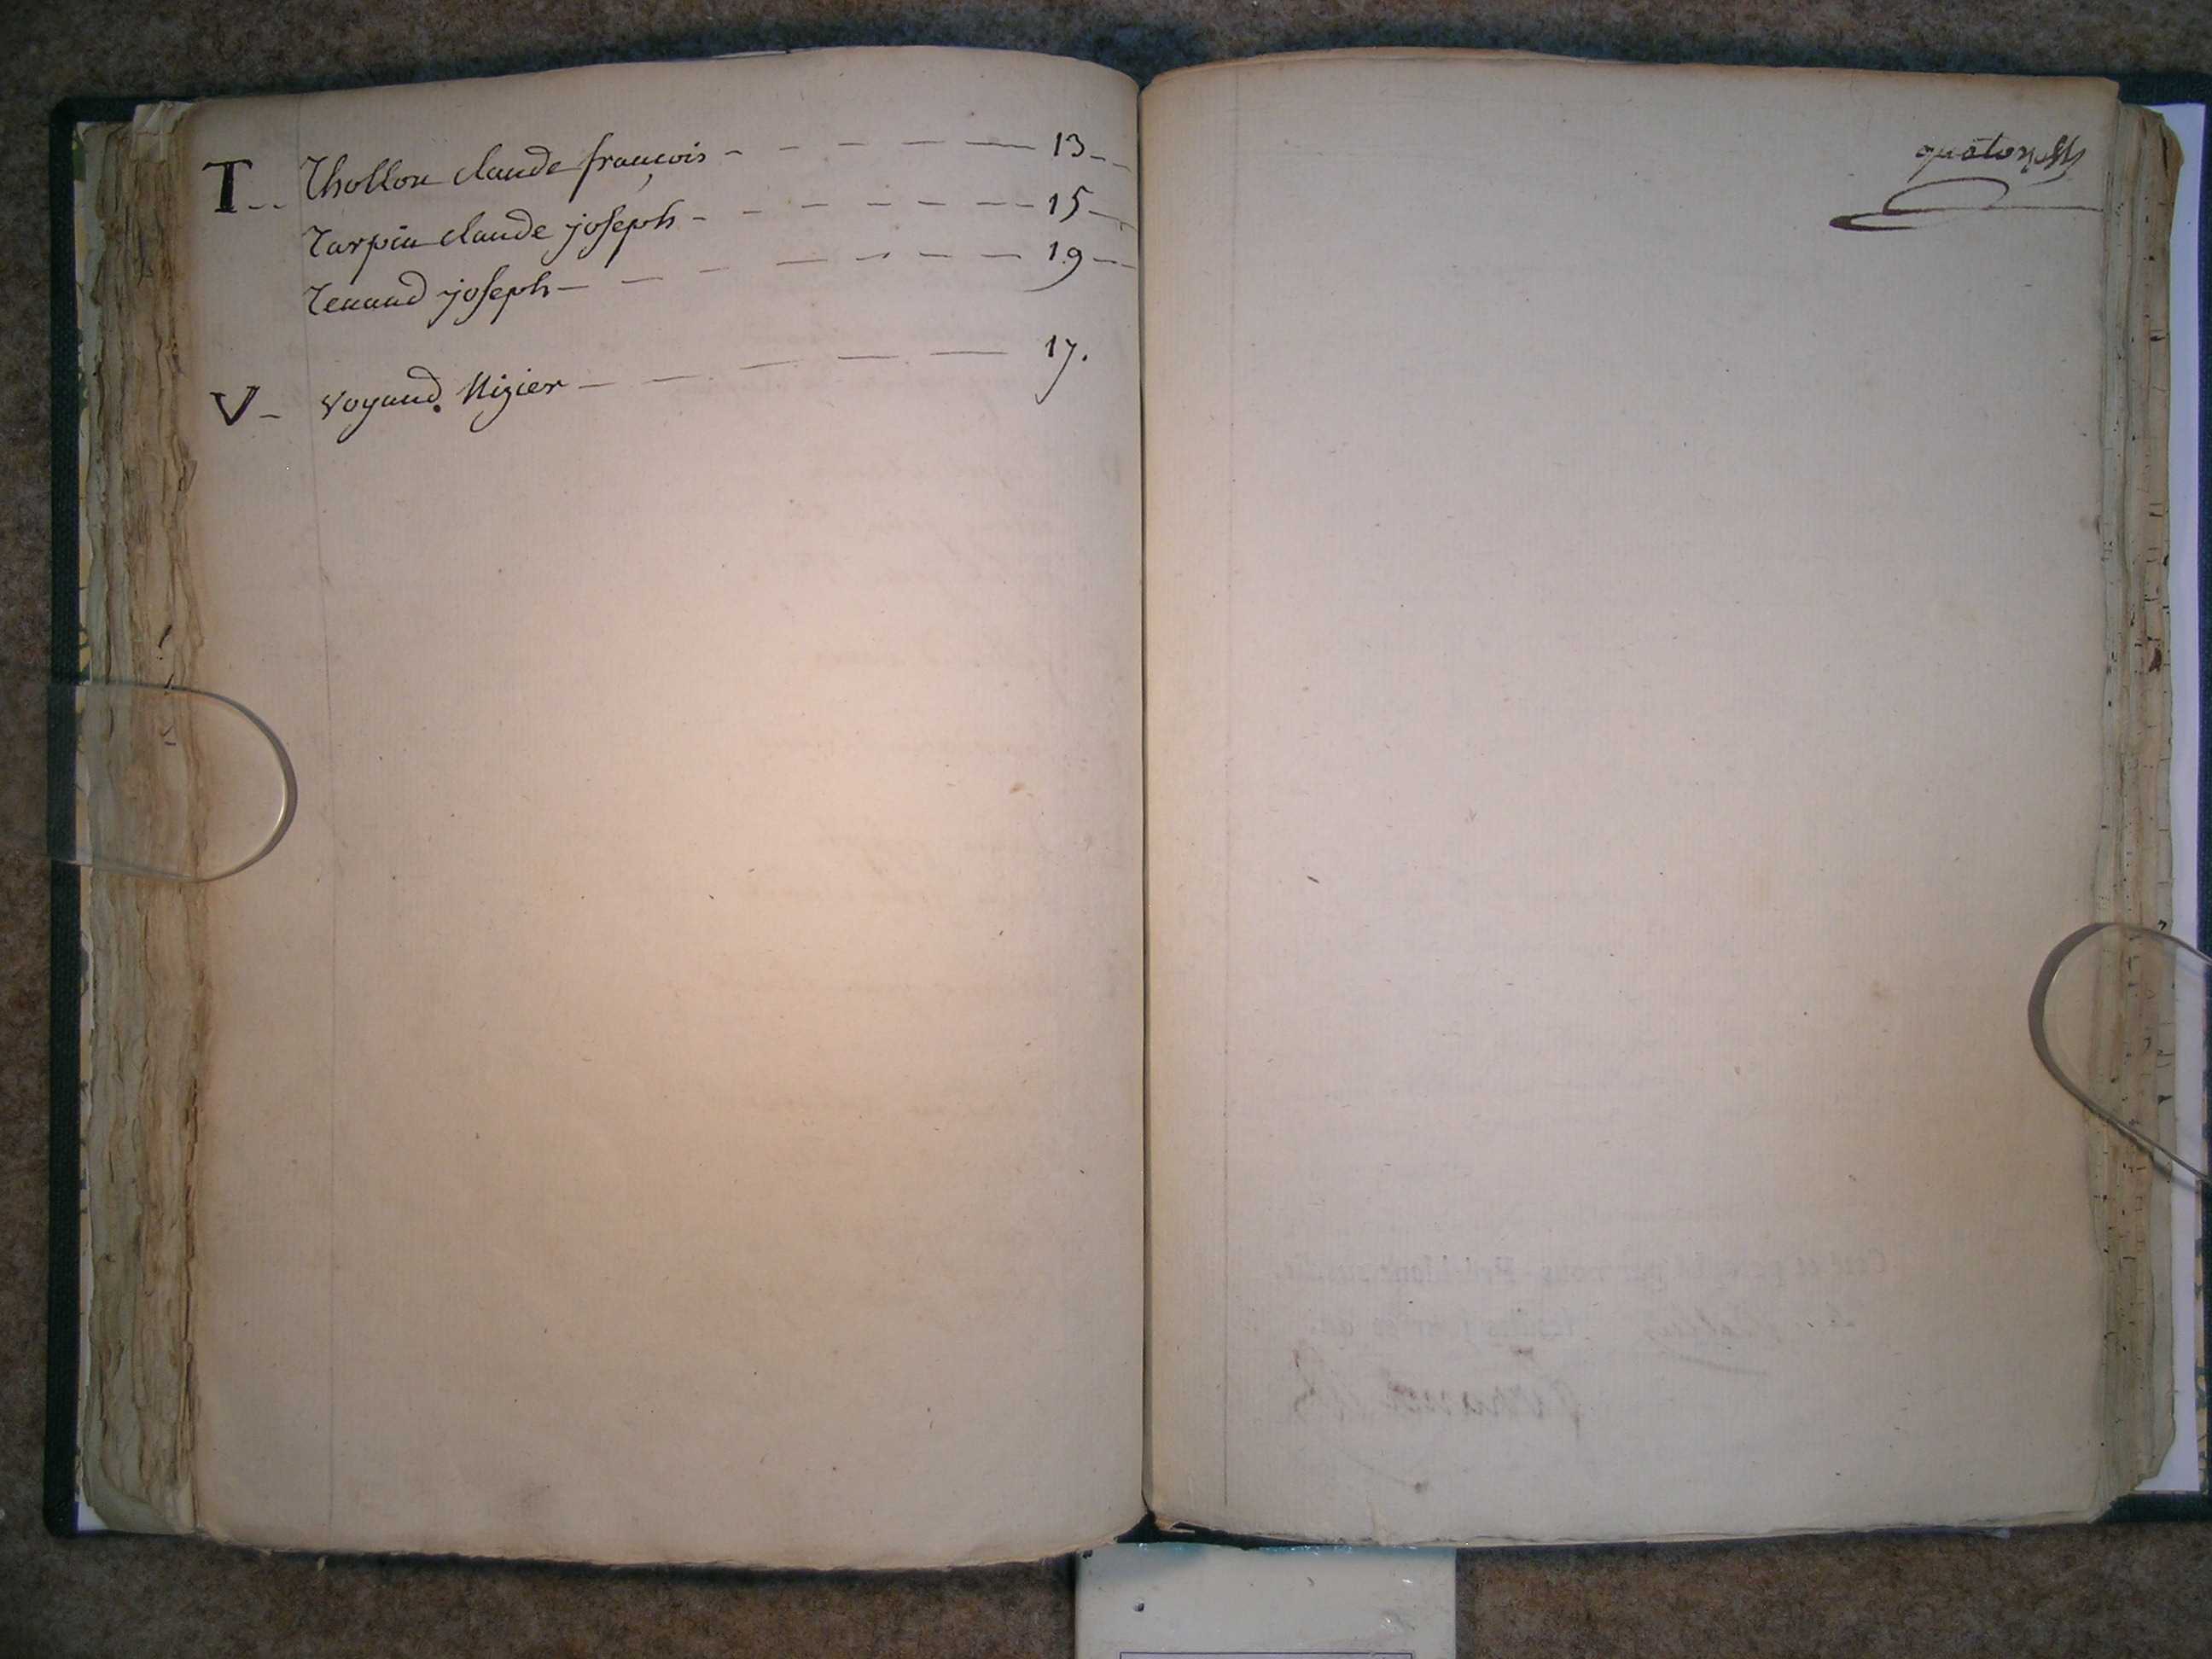 T-- Thollon claude françois - - - - - - 13--
Tarpin claude joseph - - - - - - - - 15--
Tenand joseph - - - - - - - - 19--
V- Voyand Nizier - - - - - 17.
quatorze